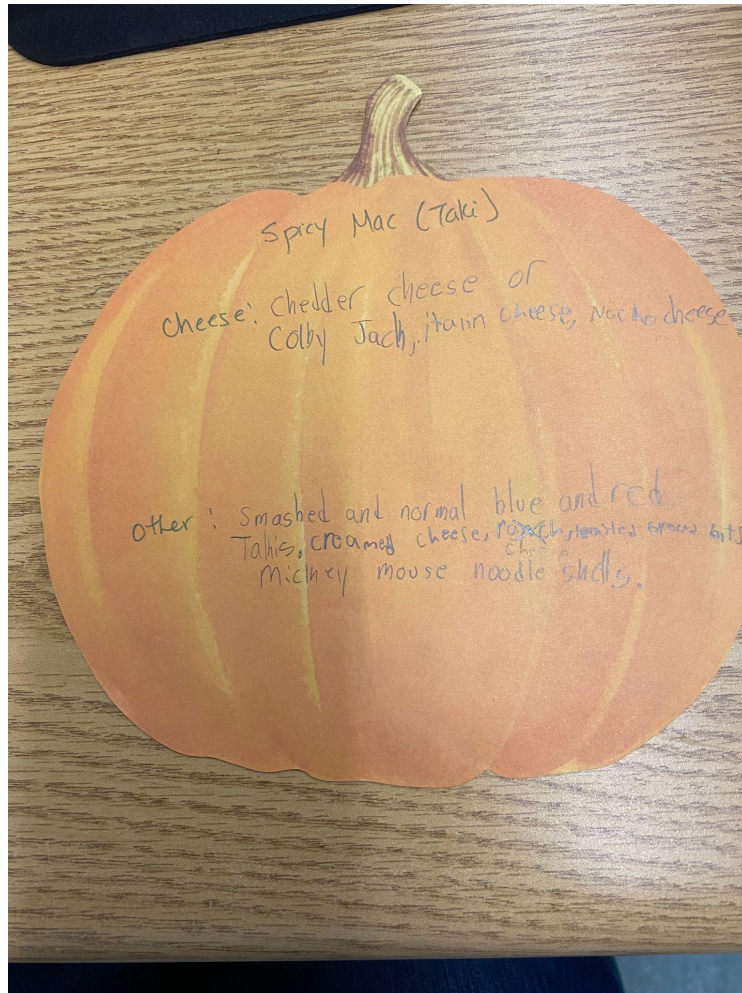 Spicy Mac (Taki)
Cheese: Chedder cheese or
Colby Jach, itaiin cheese, Nacho cheese
Other: Smashed and normal blue and red
Takis, creamed cheese, ranch, toasted bread bits
cheese
Mickey mouse noodle shells.